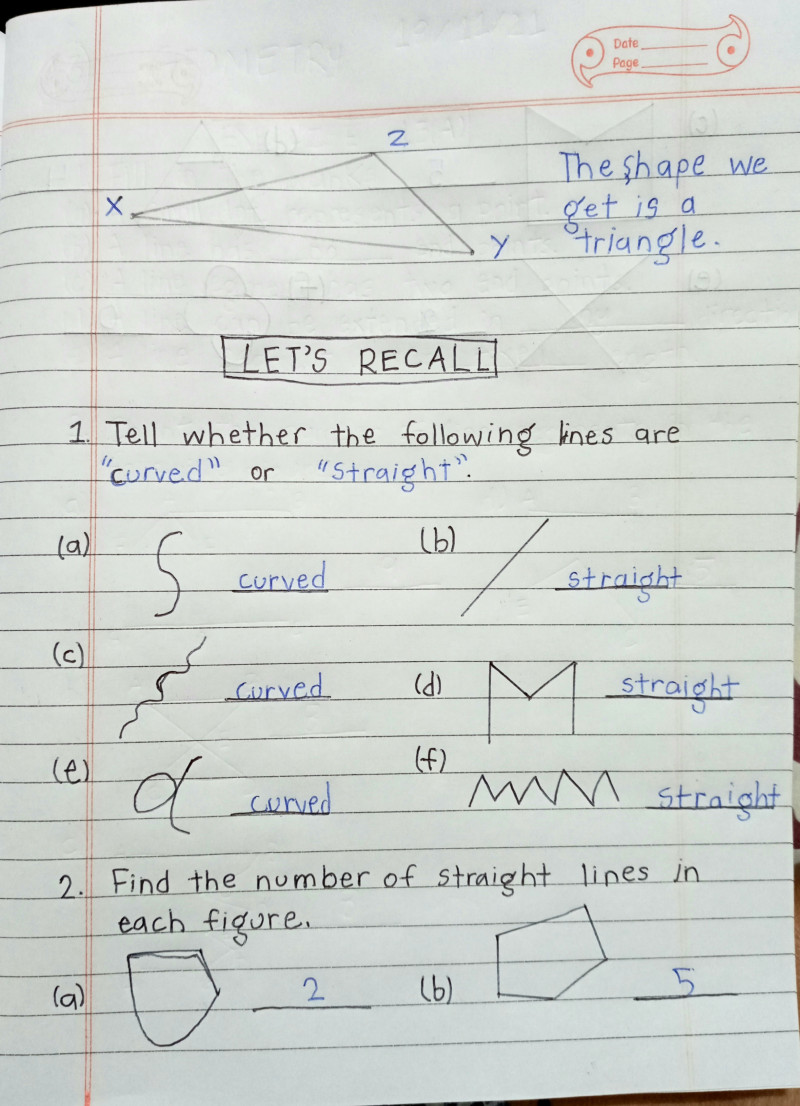 Date
Page
Z
X
Y
The shape we
get is a
triangle.
LET'S RECALL
1. Tell whether the following lines are
"curved" or "straight".
(a) curved (b) straight
(c) curved (d) straight
(e) curved (f) straight
2. Find the number of straight lines in
each figure.
(a) 2 (b) 5